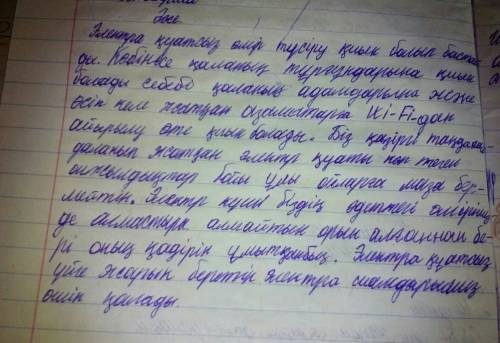 Эссе
Электр қуатсыз өмір түсіру қиын болып баста
ды. Көбінесе қаланың тұрғындарына қиын
болады себебі қаланың адамдарына және
өсіп келе жатқан азаматтарға Wi-Fi-дан
айырылу өте қиын болады. Біз қазіргі таңда пай-
даланып жатқан электр қуаты көп деген
ойларға маза бер-
мейтін. Электр күші біздің әдеттегі өмірімі
де алмастыра алмайтын орын алғаннан бе-
рі оның қадірін ұмытқанбыз. Электр қуатсыз
үйге жарық беретін электр шамдарымыз
өшіп қалады.